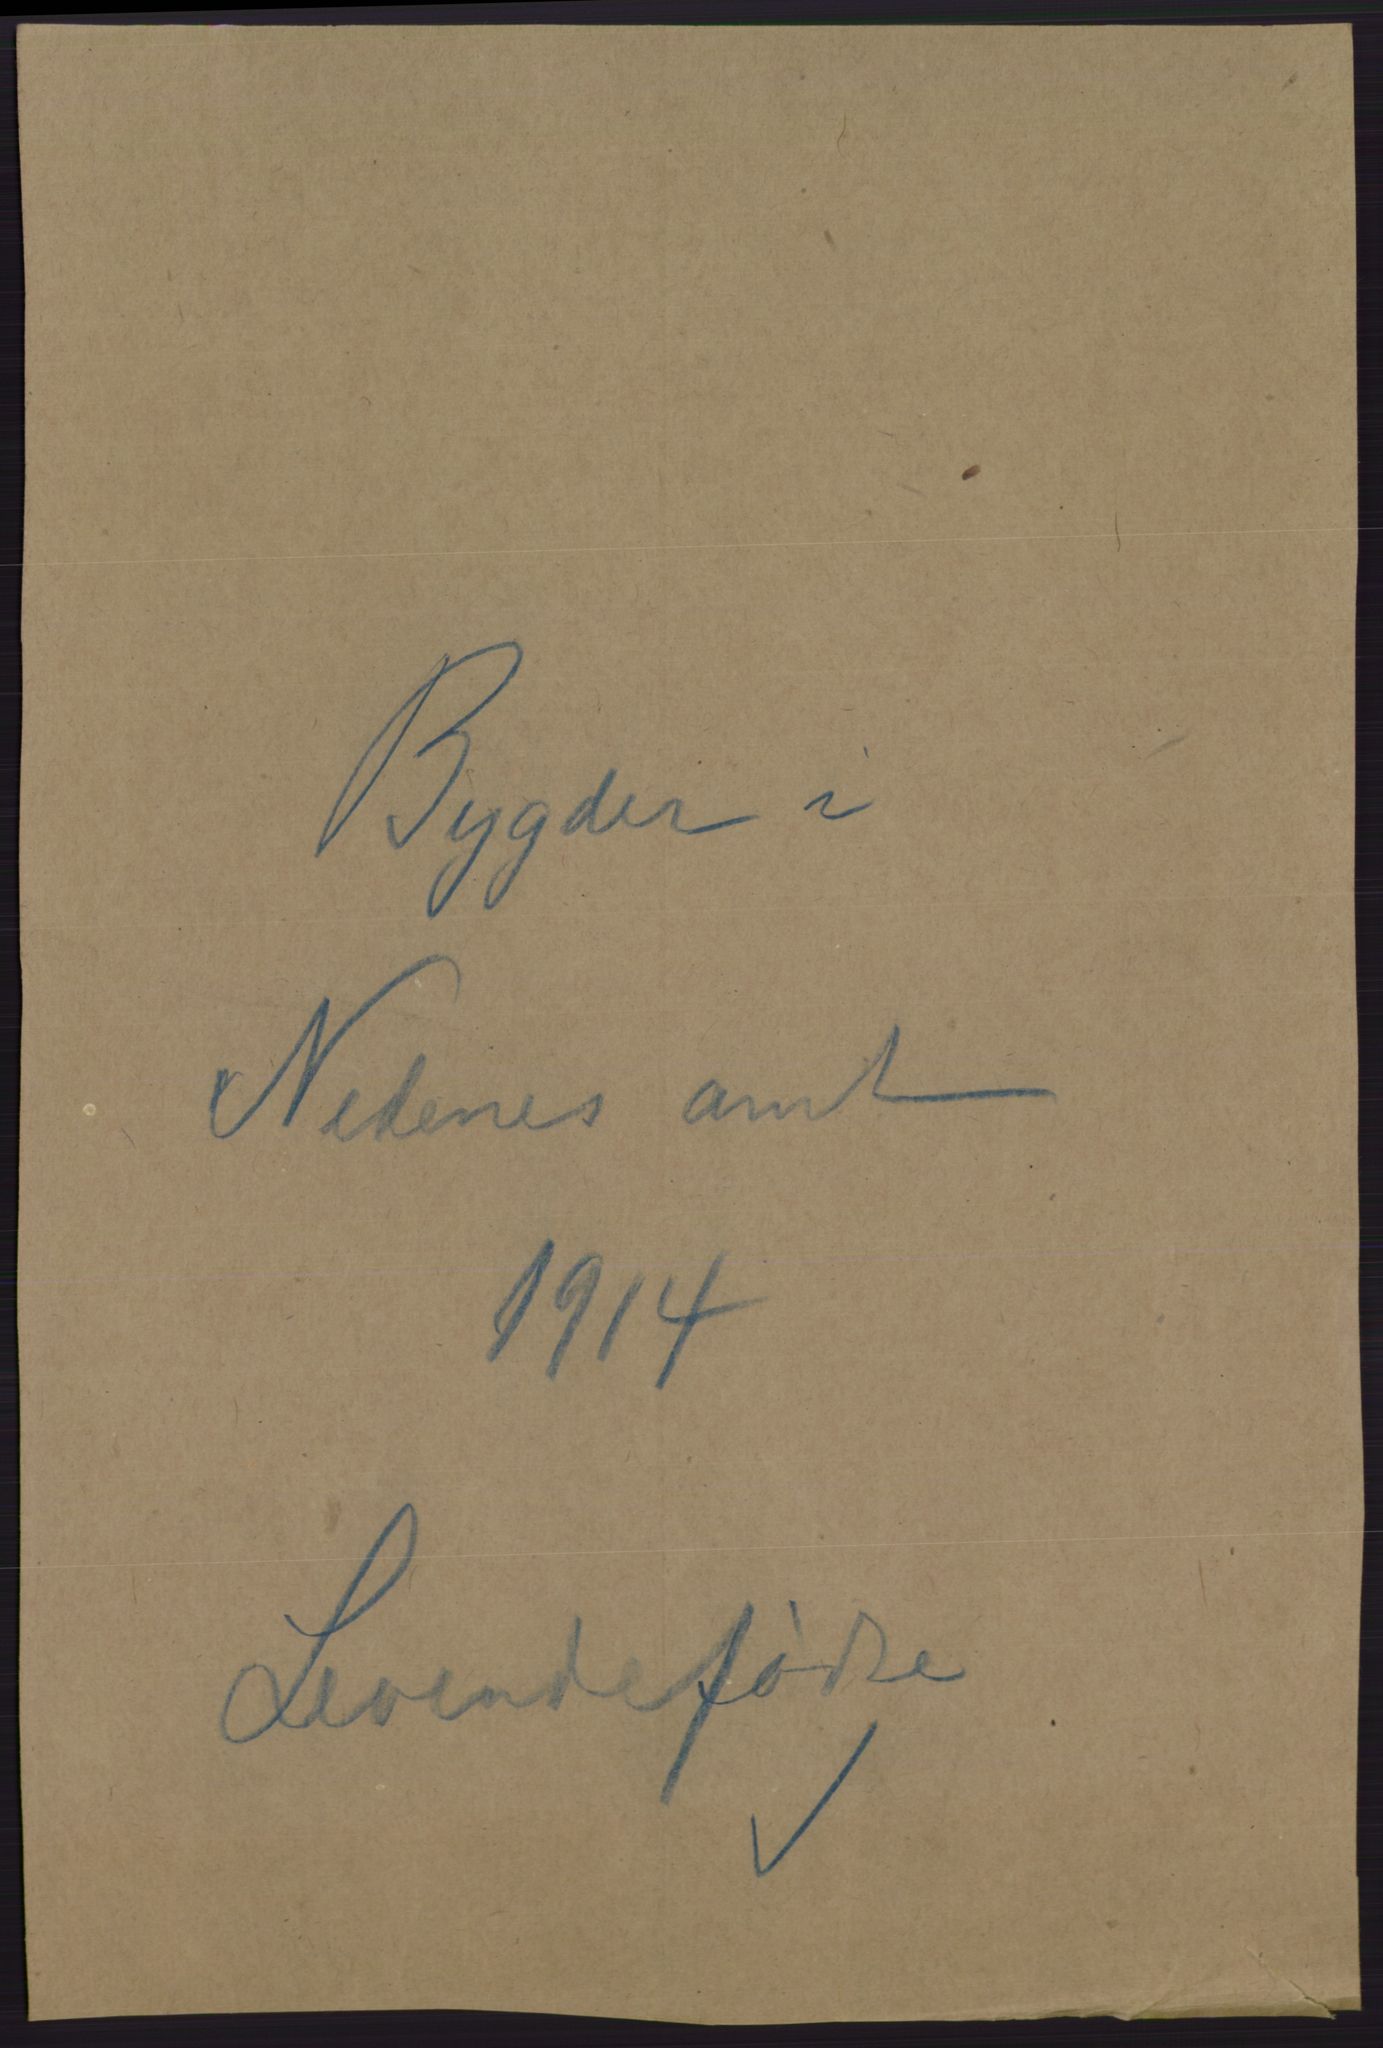 Bygder i
Nedenes amt
1914
Levendefødte
✓